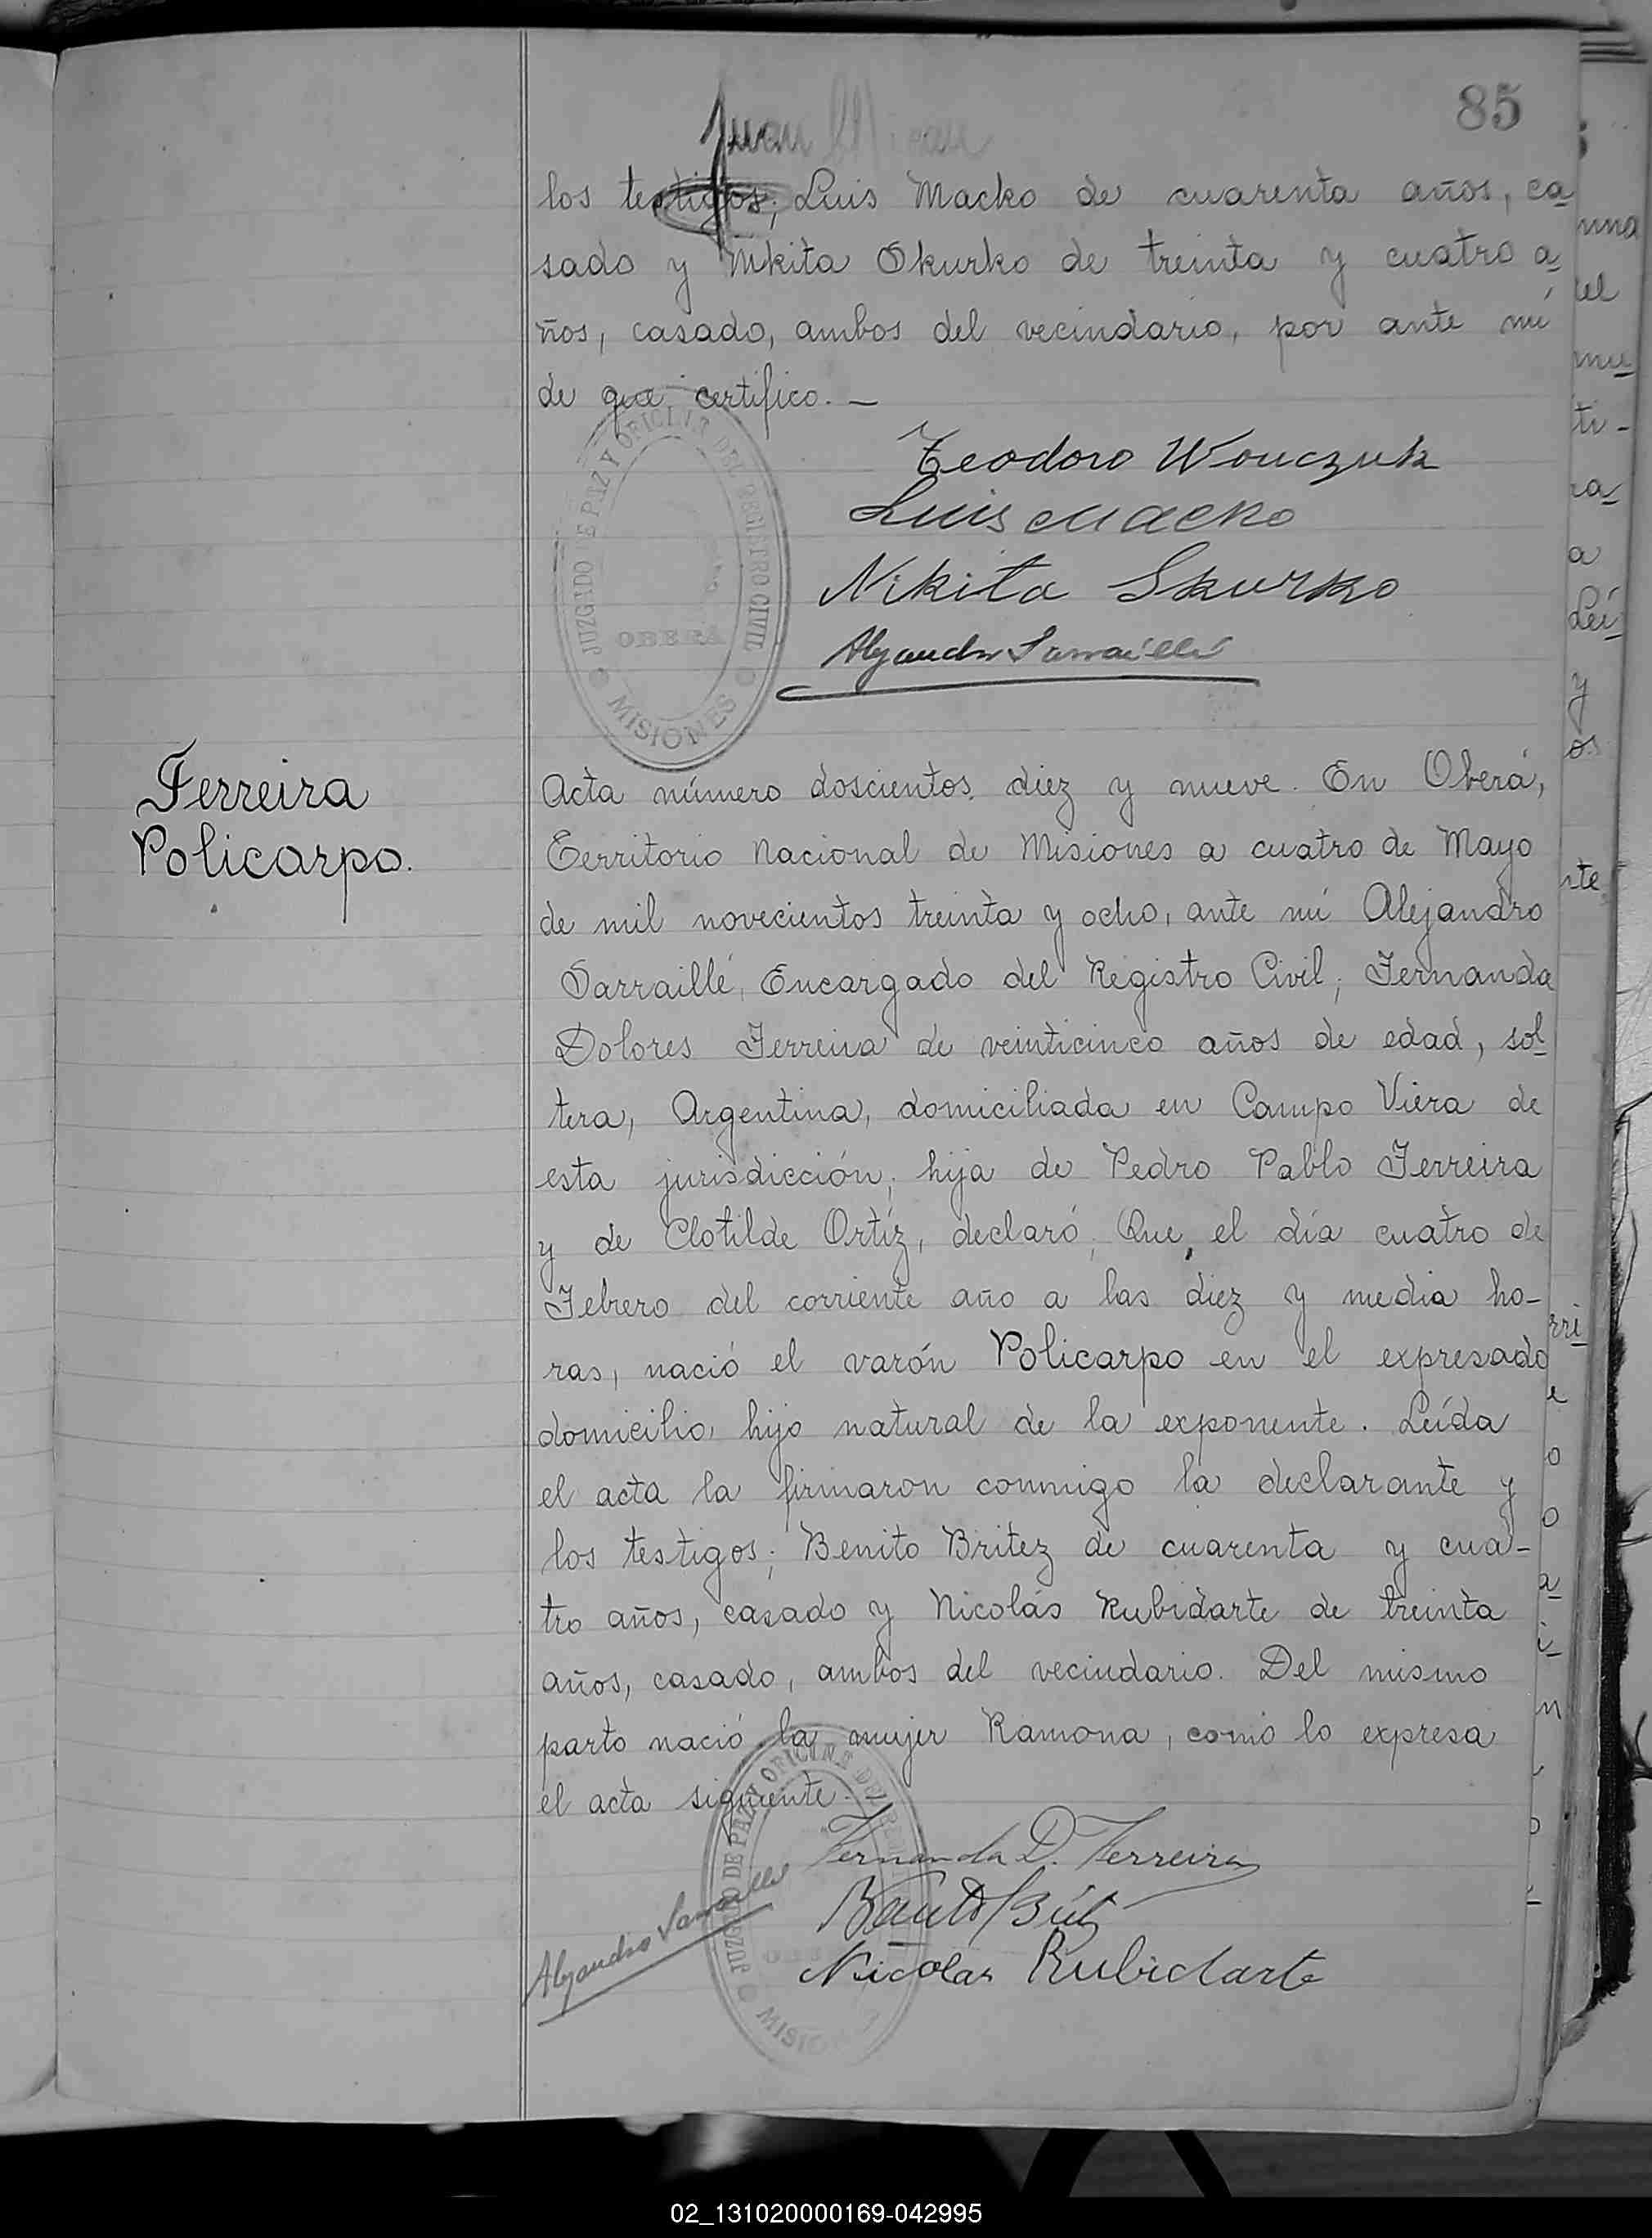 85
Juan
los testigos; Luis Macko de cuarenta años, ca-
sado y Nikita Skurko de treinta y cuatro a-
ños, casado, ambos del vecindario, por ante mí
de que certifico. —
Teodoro Wouczuk
Luis Macko
Nikita Skurko
Alejandro Sarraillé
JUZGADO DE PAZ Y OFICINA DEL REGISTRO CIVIL
OBERÁ
MISIONES
Ferreira
Policarpo.
Acta número doscientos diez y nueve. En Oberá,
Territorio Nacional de Misiones a cuatro de Mayo
de mil novecientos treinta y ocho, ante mí Alejandro
Sarraillé, Encargado del Registro Civil; Fernanda
Dolores Ferreira de veinticinco años de edad, sol-
tera, Argentina, domiciliada en Campo Viera de
esta jurisdicción; hija de Pedro Pablo Ferreira
y de Clotilde Ortíz, declaró; Que, el día cuatro de
Febrero del corriente año a las diez y media ho-
ras, nació el varón Policarpo en el expresado
domicilio, hijo natural de la exponente. Leída
el acta la firmaron conmigo la declarante y
los testigos; Benito Britez de cuarenta y cua-
tro años, casado y Nicolás Rubidarte de treinta
años, casado, ambos del vecindario. Del mismo
parto nació la mujer Ramona, como lo expresa
el acta siguiente.
Fernanda D. Ferreira
Nicolas Rubidarte
Alejandro Sarraillé
JUZGADO DE PAZ Y OFICINA DEL
MISIONES
02_131020000169-042995